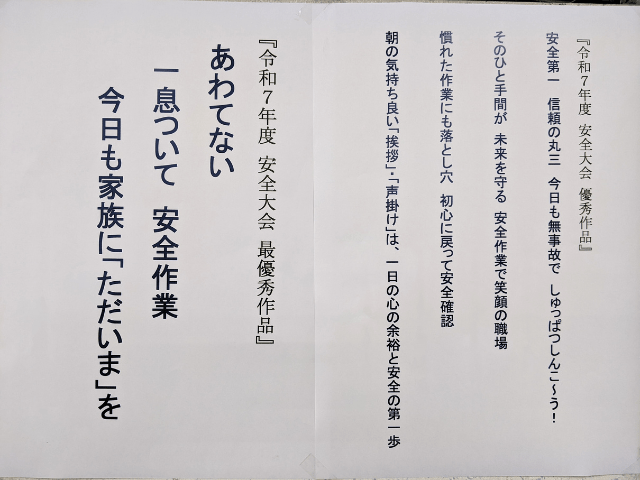 『令和7年度 安全大会 優秀作品』
安全第一 信頼の丸三 今日も無事故で しゅっぱつしんこ～う！
そのひと手間が 未来を守る 安全作業で笑顔の職場
慣れた作業にも落とし穴 初心に戻って安全確認
朝の気持ち良い「挨拶」・「声掛け」は、一日の心の余裕と安全の第一歩
『令和7年度 安全大会 最優秀作品』
あわてない
一息ついて 安全作業
今日も家族に「ただいま」を